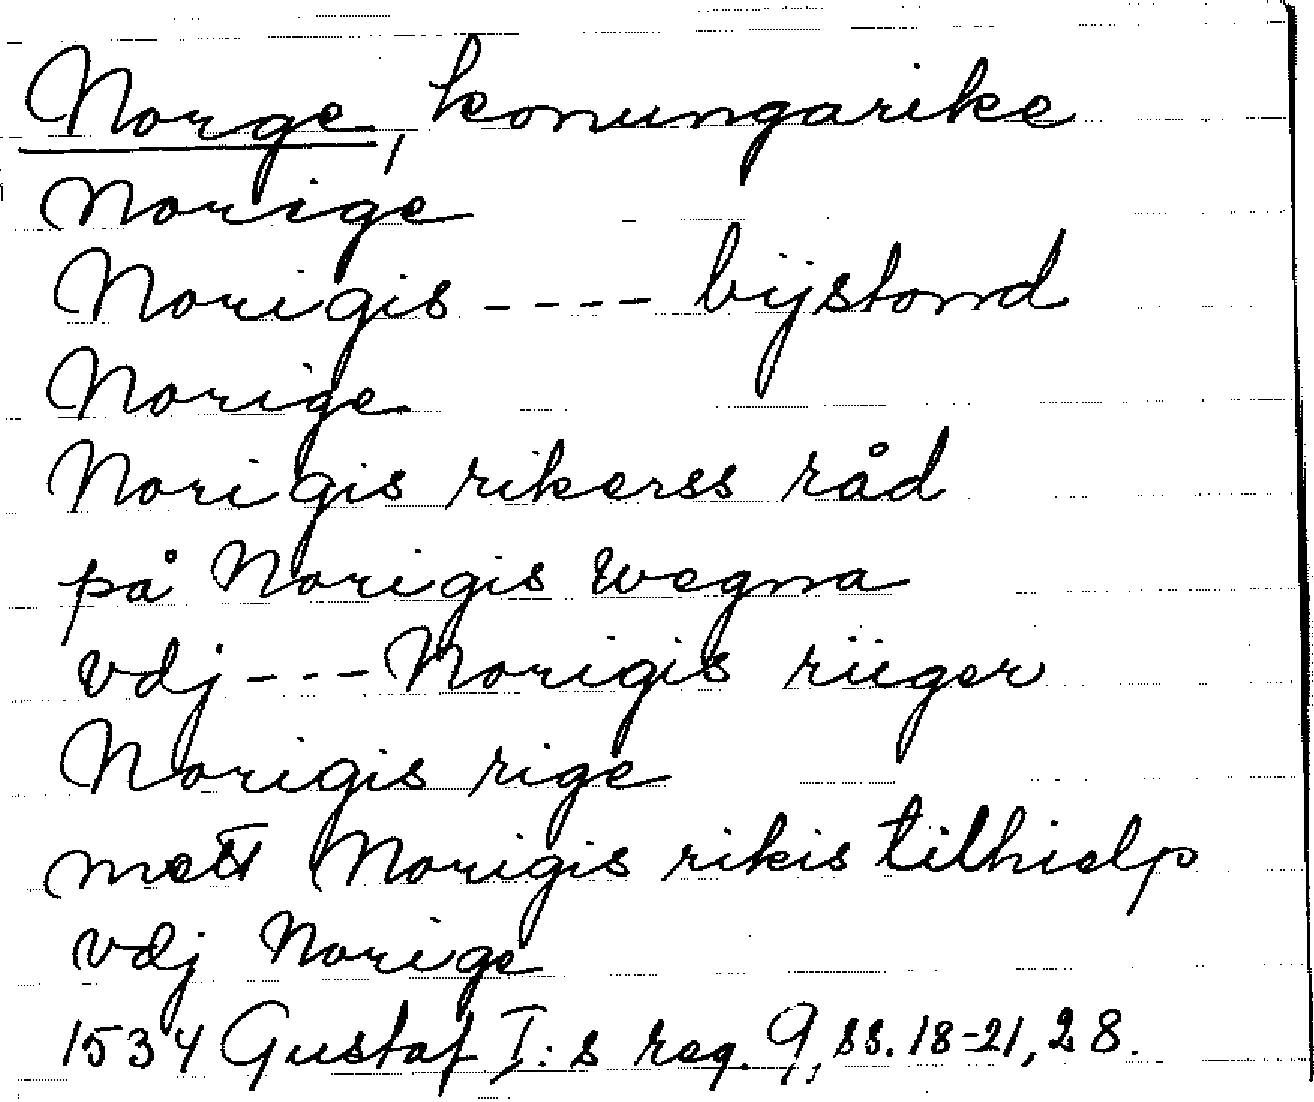 Norge, konungarike
Norige
Norigis ---- bijstond
Norige
Norigis rikerss råd
på Norigis wegna
vdj --- Norigis riiger
Norigis rige
mett Norigis rikis tilhielp
vdj Norige
1534 Gustaf I:s reg. 9, ss. 18-21, 28.